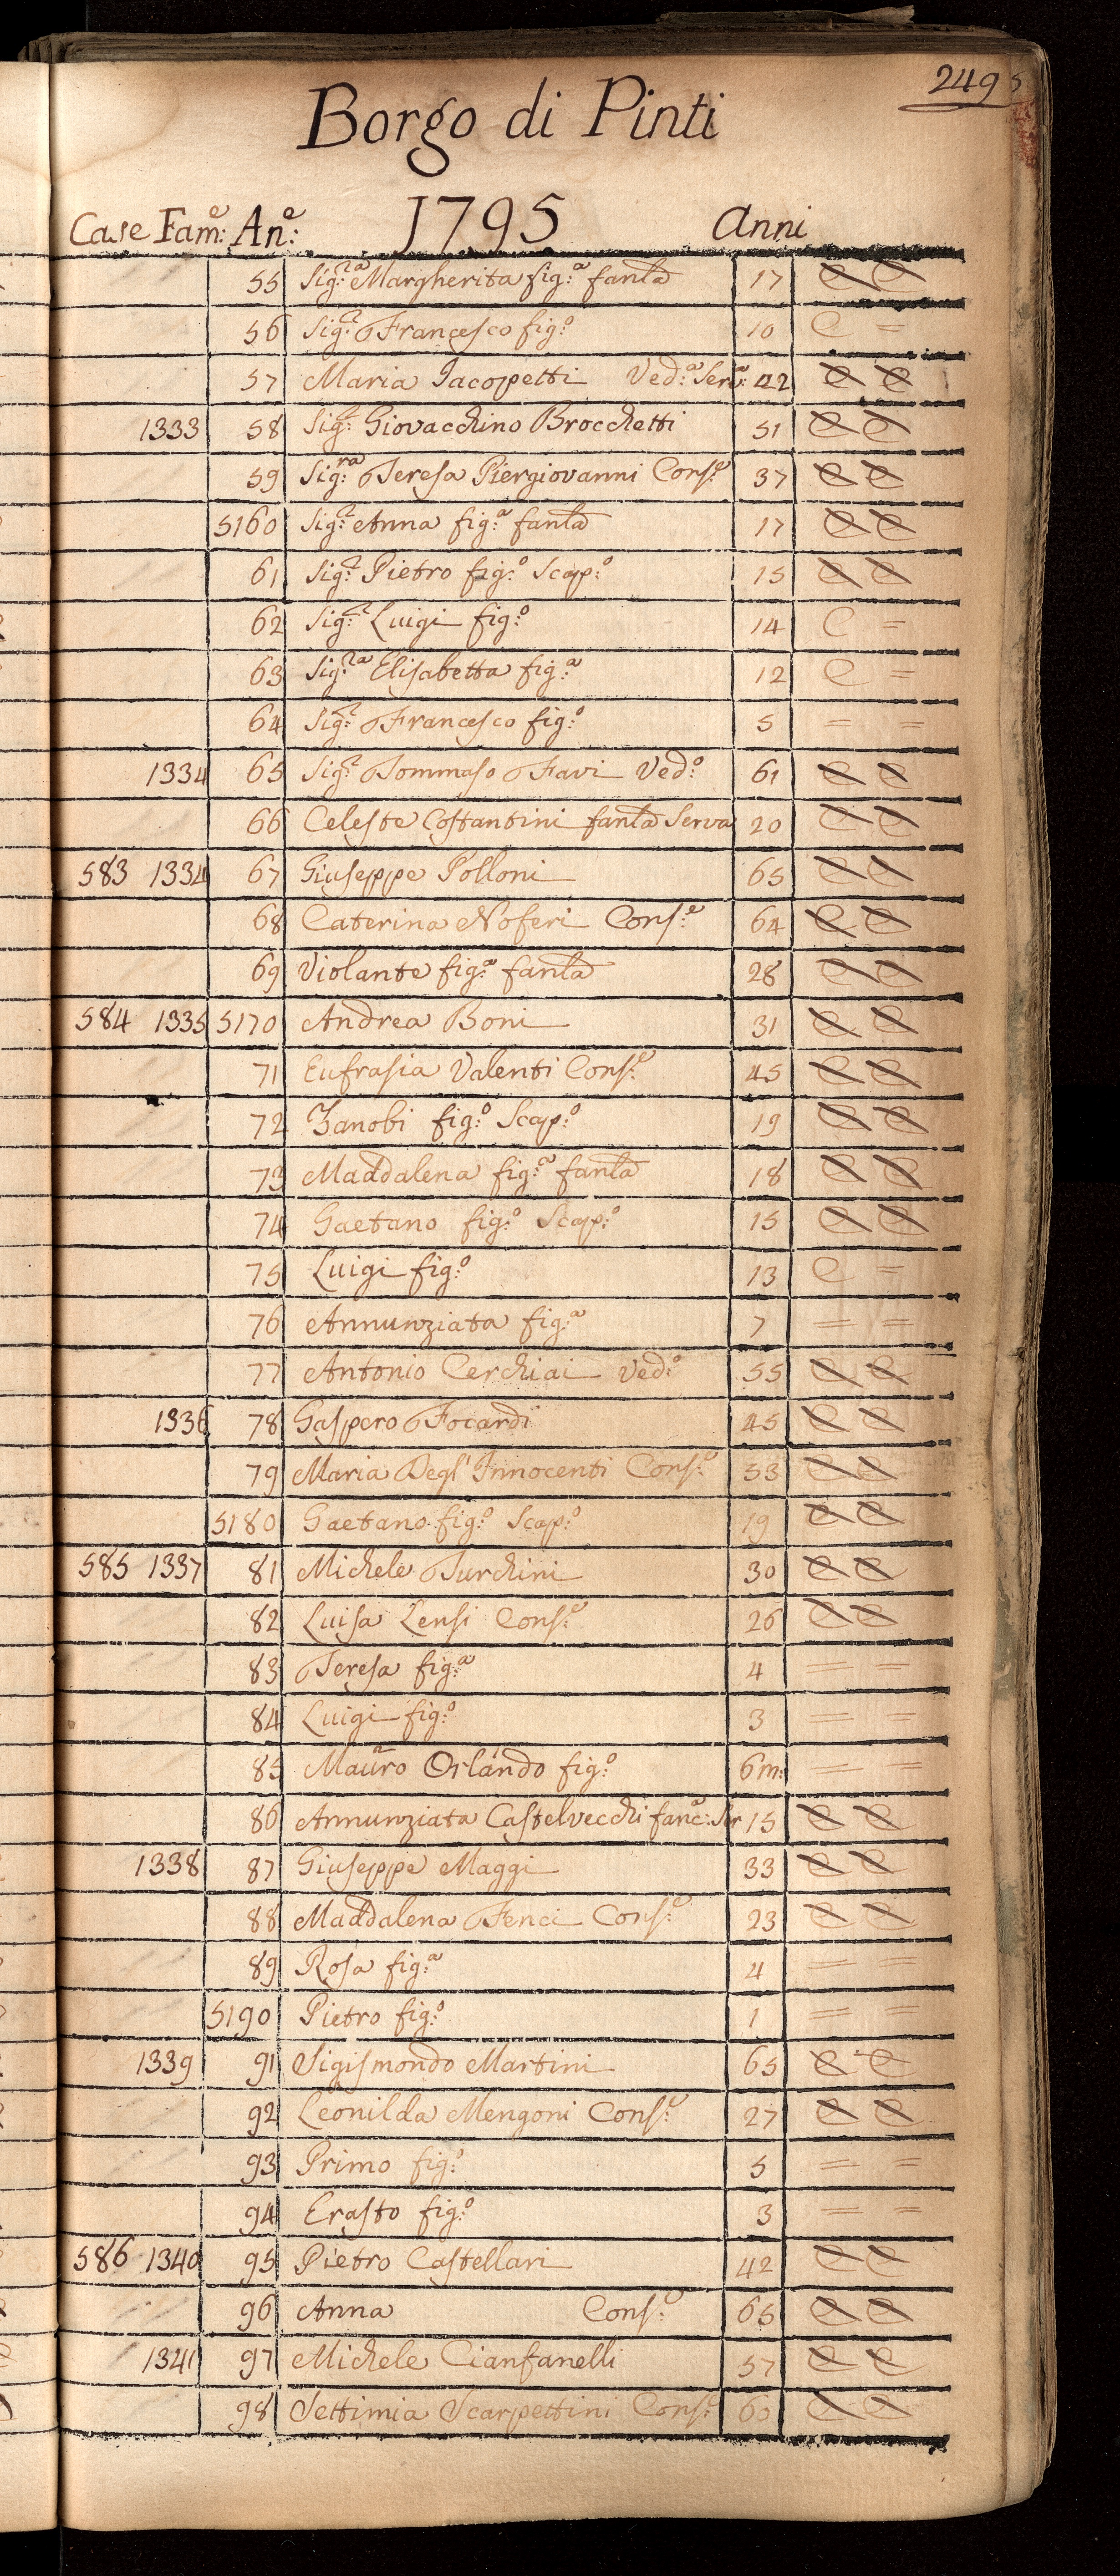 249
Borgo di Pinti
Case Fam:e An:e 1795 Anni
55 Sig:ra Margherita fig:a fanla 17 C C
56 Sig:r Francesco fig:o 10 C =
57 Maria Iacopetti Ved:a Serv:a 42 C C
1333 58 Sig:r Giovacchino Brocchetti 51 C C
59 Sig:ra Teresa Piergiovanni Cons:e 37 C C
5160 Sig:r Anna fig:a fanla 17 C C
61 Sig:r Pietro fig:o Scap:o 15 C C
62 Sig:r Luigi fig:o 14 C =
63 Sig:ra Elisabetta fig:a 12 C =
64 Sig:r Francesco fig:o 5 = =
1334 65 Sig:r Tommaso Favi Ved:o 61 C C
66 Celeste Costantini fanla Serva 20 C C
583 1334 67 Giuseppe Polloni 65 C C
68 Caterina Noferi Cons:e 64 C C
69 Violante fig:a fanla 28 C C
584 1335 5170 Andrea Boni 31 C C
71 Eufrasia Valenti Cons:e 45 C C
72 Zanobi fig:o Scap:o 19 C C
73 Maddalena fig:a fanla 18 C C
74 Gaetano fig:o Scap:o 15 C C
75 Luigi fig:o 13 C =
76 Annunziata fig:a 7 = =
77 Antonio Cerchiai Ved:o 55 C C
1336 78 Gaspero Focardi 45 C C
79 Maria Degl' Innocenti Cons:e 33 C C
5180 Gaetano fig:o Scap:o 19 C C
585 1337 81 Michele Turchini 30 C C
82 Luisa Lensi Cons:e 26 C C
83 Teresa fig:a 4 = =
84 Luigi fig:o 3 = =
85 Mauro Orlando fig:o 6m: = =
86 Annunziata Castelvecchi fanc: Ser 15 C C
1338 87 Giuseppe Maggi 33 C C
88 Maddalena Fenci Cons:e 23 C C
89 Rosa fig:a 4 = =
5190 Pietro fig:o 1 = =
1339 91 Sigismondo Martini 65 C C
92 Leonilda Mengoni Cons:e 27 C C
93 Primo fig:o 5 = =
94 Erasto fig:o 3 = =
586 1340 95 Pietro Castellari 42 C C
96 Anna Cons:e 65 C C
1341 97 Michele Cianfanelli 57 C C
98 Settimia Scarpettini Cons:e 60 C C